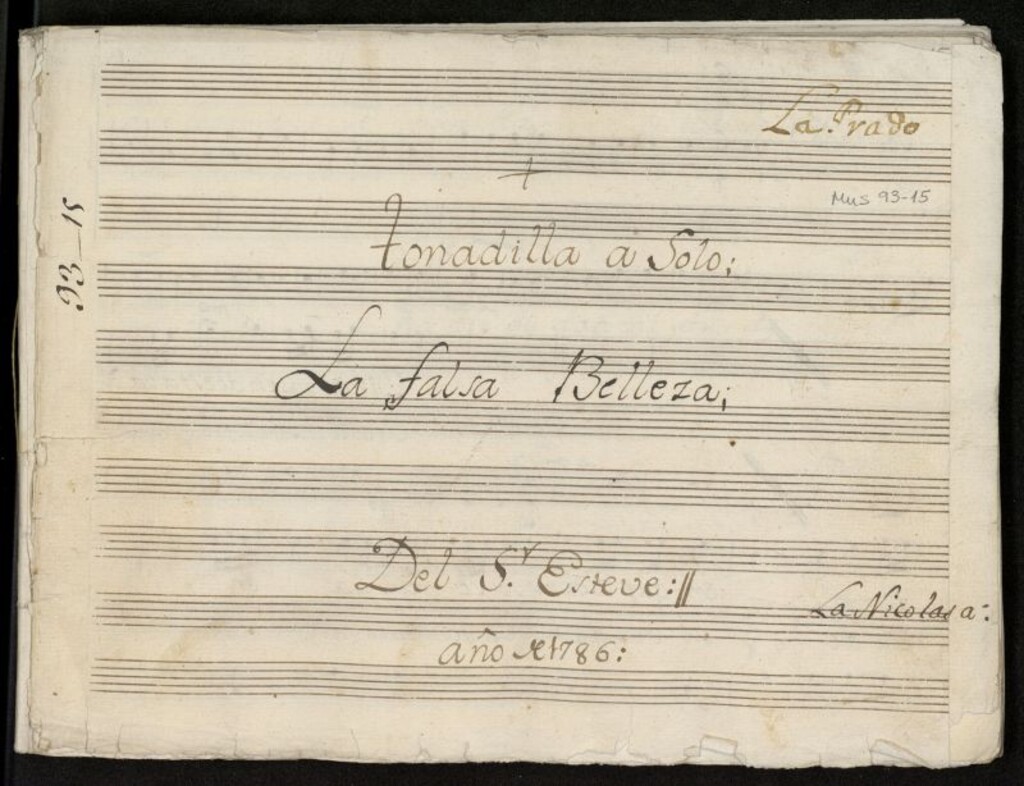 La Prado
+
Mus 93-15
93-15
tonadilla a Solo;
La falsa Belleza;
Del S.r Esteve:||
La Nicolasa:
año de 1786: